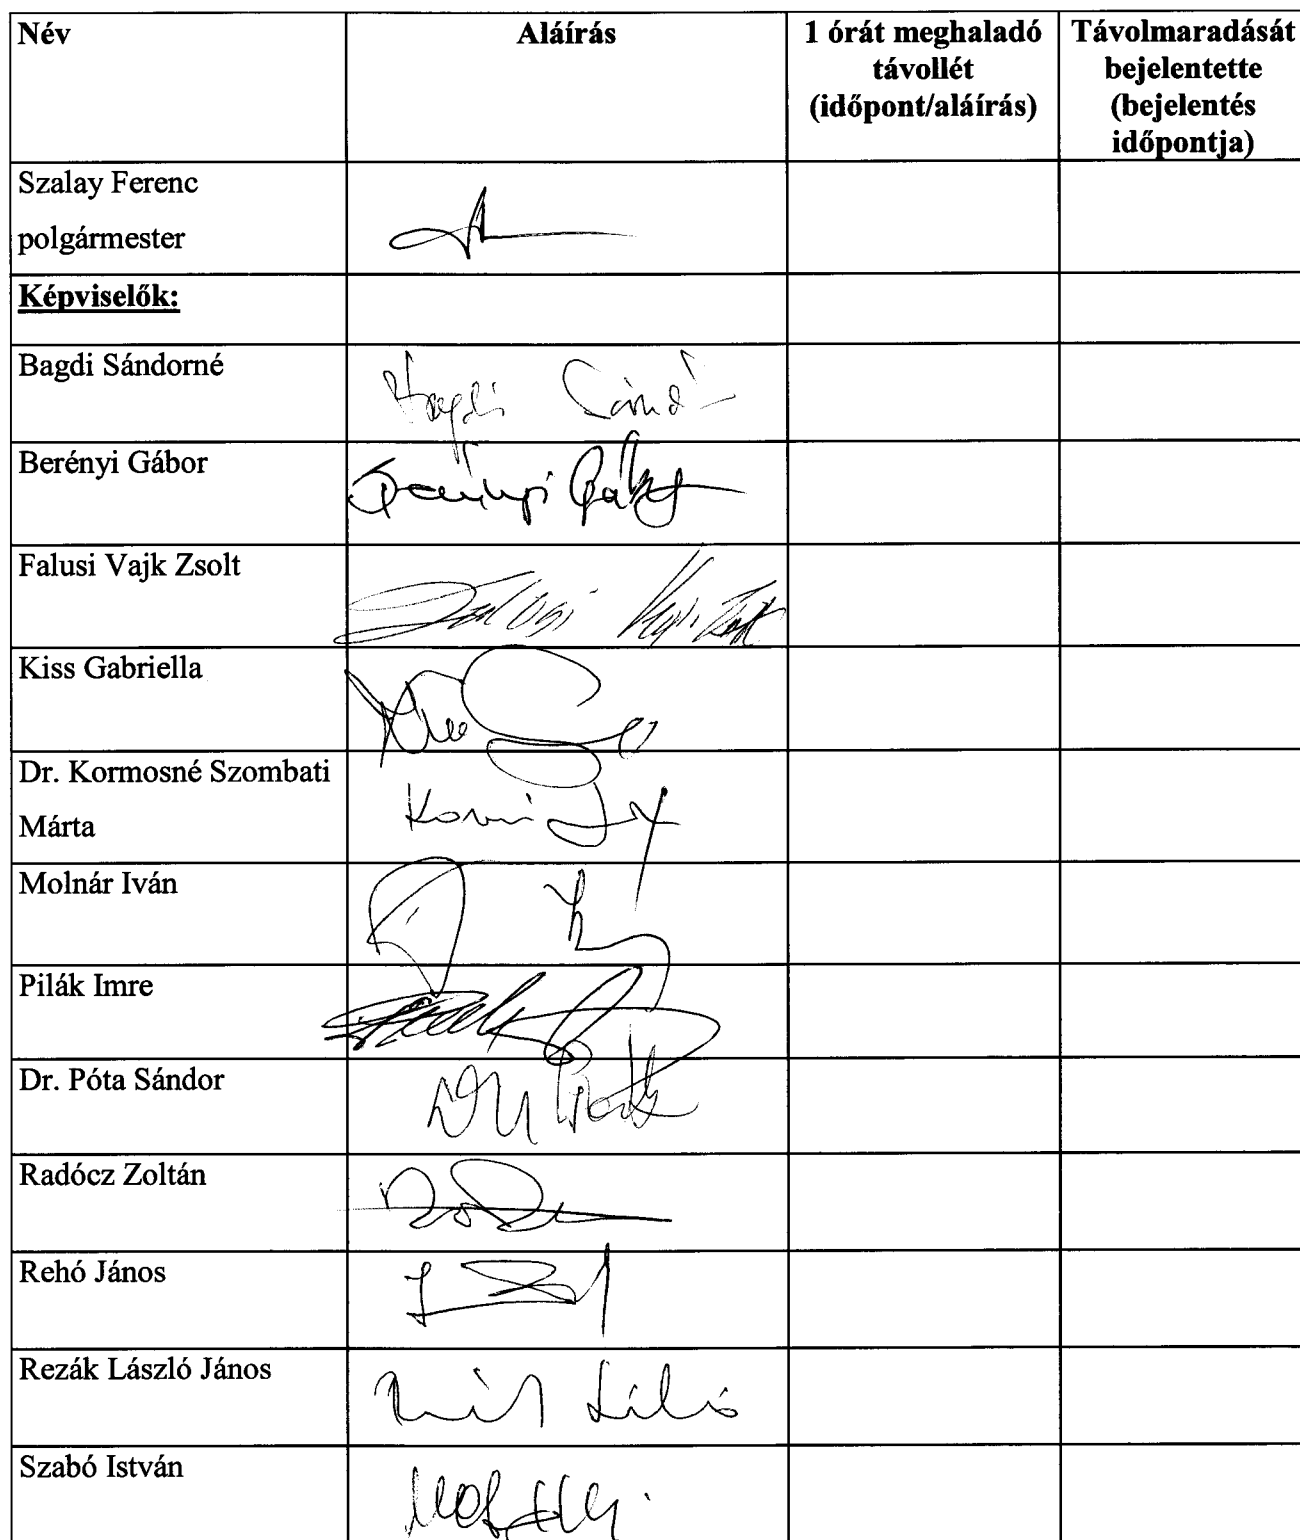 Név Aláírás 1 órát meghaladó Távolmaradását
távollét bejelentette
(időpont/aláírás) (bejelentés
időpontja)
Szalay Ferenc
polgármester
Képviselők:
Bagdi Sándorné
Berényi Gábor
Berényi Gábor
Falusi Vajk Zsolt
Falusi Vajk Zsolt
Kiss Gabriella
Dr. Kormosné Szombati
Márta
Molnár Iván
Pilák Imre
Dr. Póta Sándor
Radócz Zoltán
Rehó János
Rezák László János
Szabó István